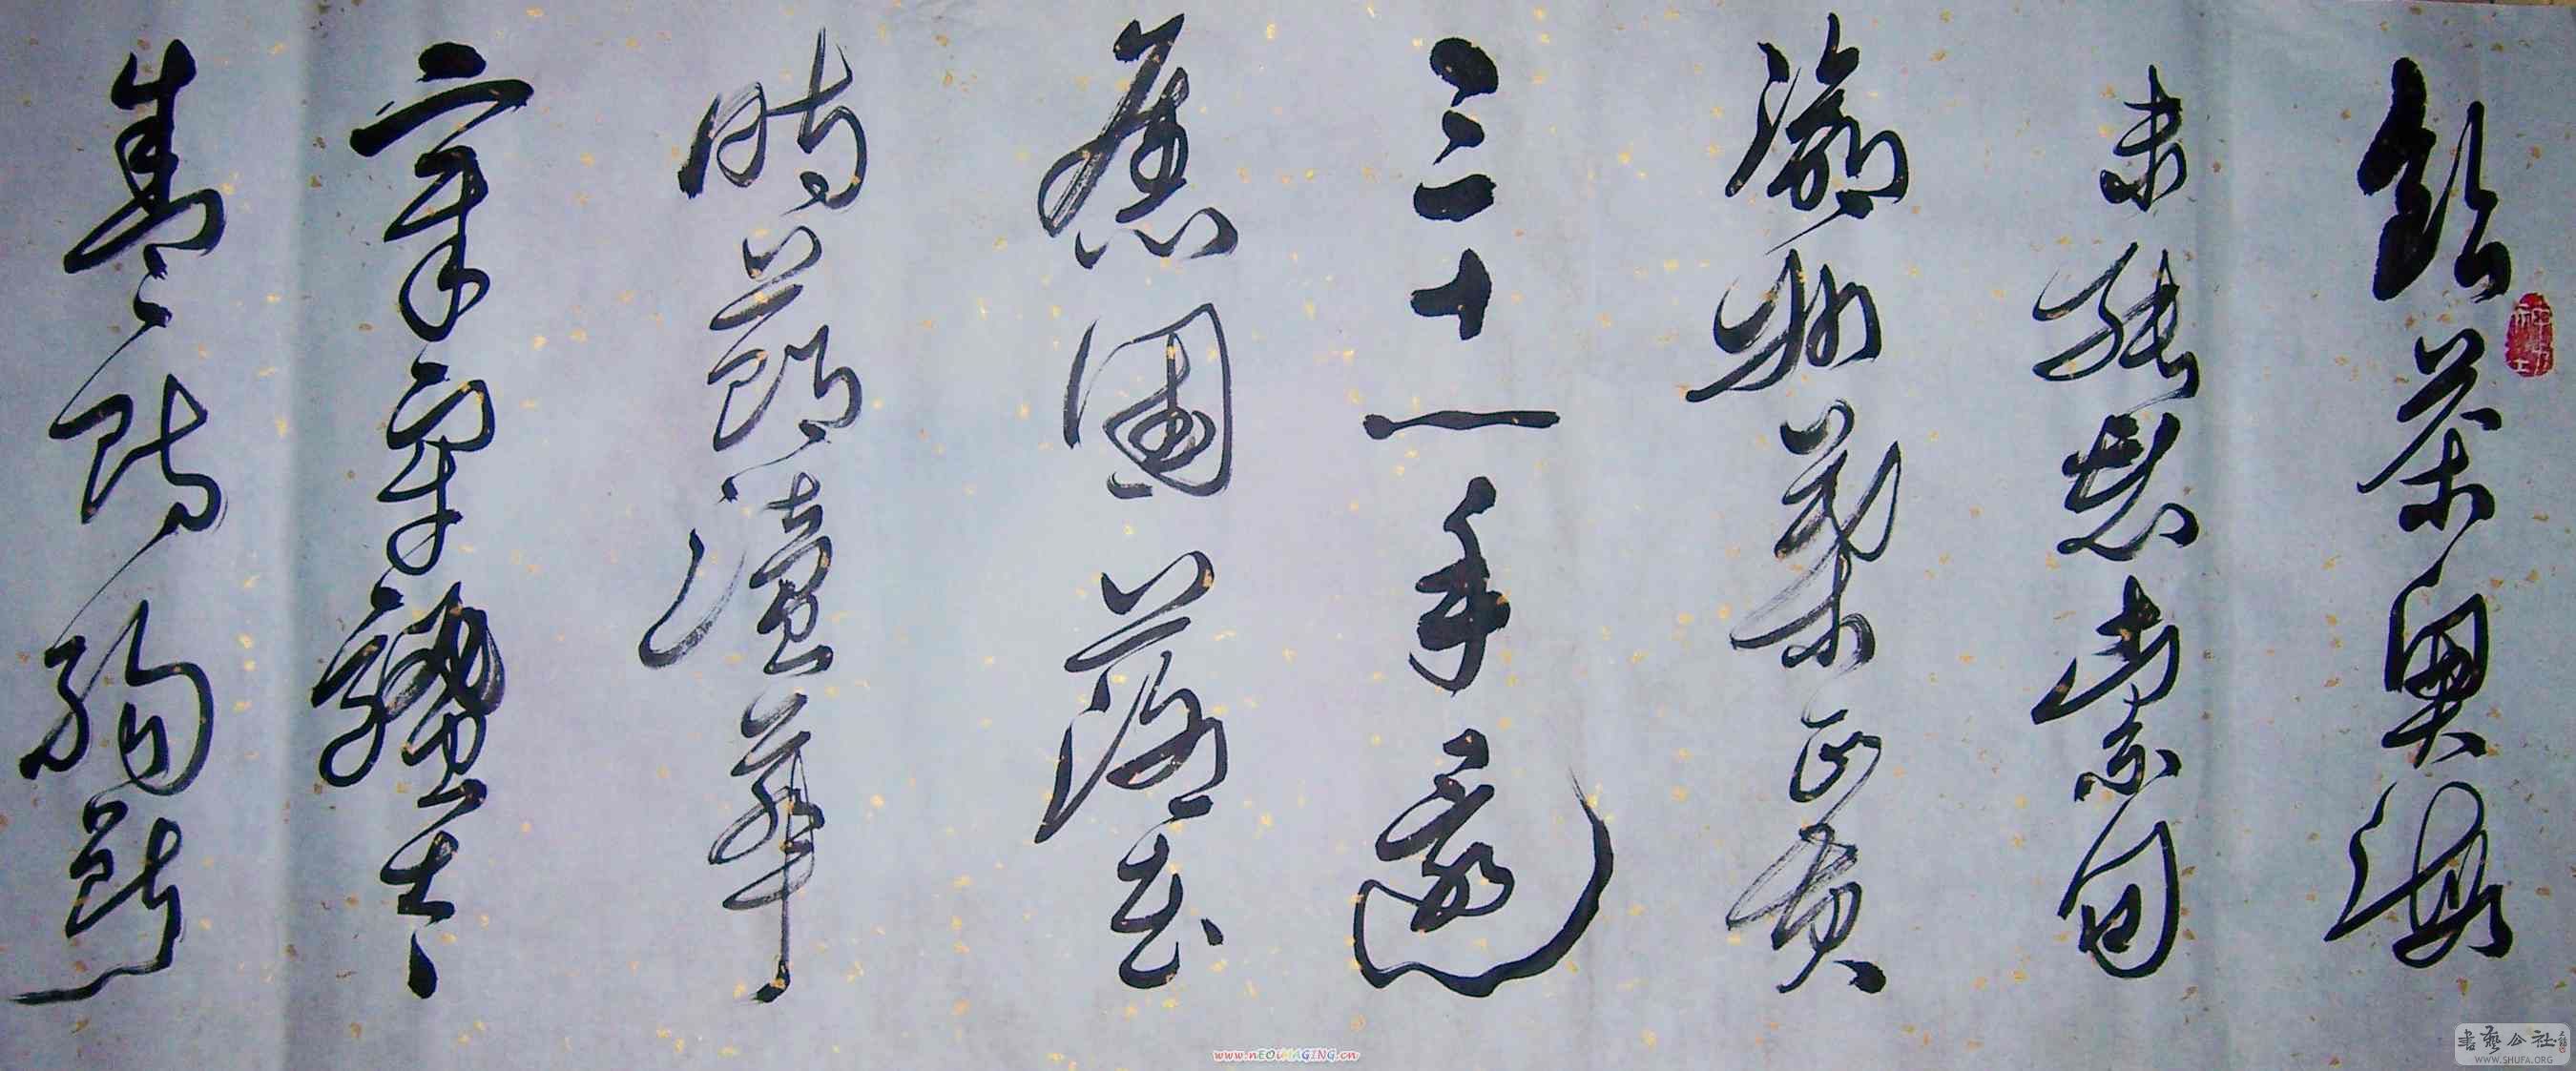 飲茶粤海
未能忘索句
渝州葉正黄
三十一年還
舊國落花
時節讀華
章牢騷太
盛防腸斷
www.nEOiMAGiNG.cn
書藝公社
WWW.SHUFA.ORG